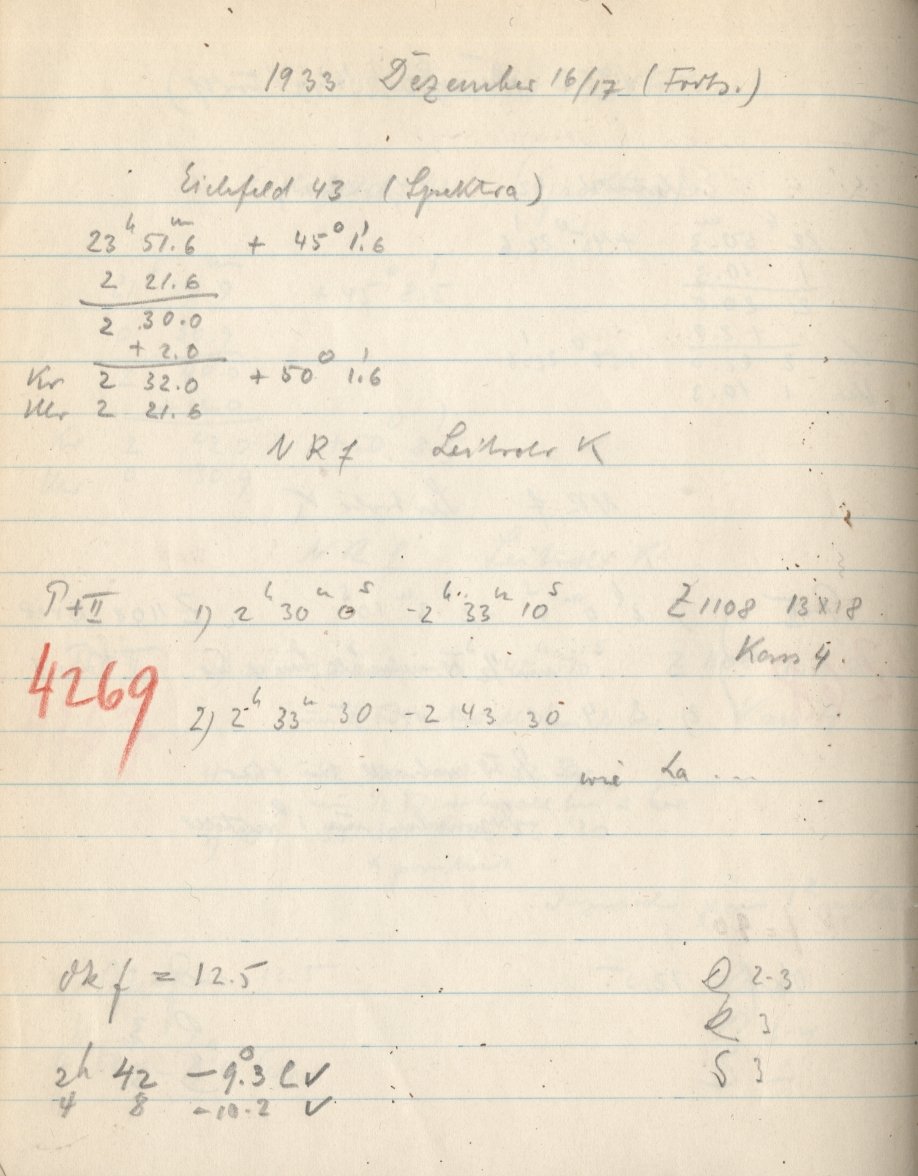 1933 Dezember 16/17 (Forts.)
Eichfeld 43 (Spektra)
23h 51m.6 + 45° 1'.6
2 21.6
2 30.0
+ 2.0
Kr 2 32.0 + 50° 1'.6
Uhr 2 21.6
N R f Leitrohr K
P+II 1) 2h 30m 0s - 2h 33m 10s Z 1108 13x18
Kass 4.
4269
2) 2h 33m 30 - 2 43 30
wie La ...
Okf = 12.5 2-3
R 3
S 3
2h 42 -9°.3 ✓
4 8 -10.2 ✓